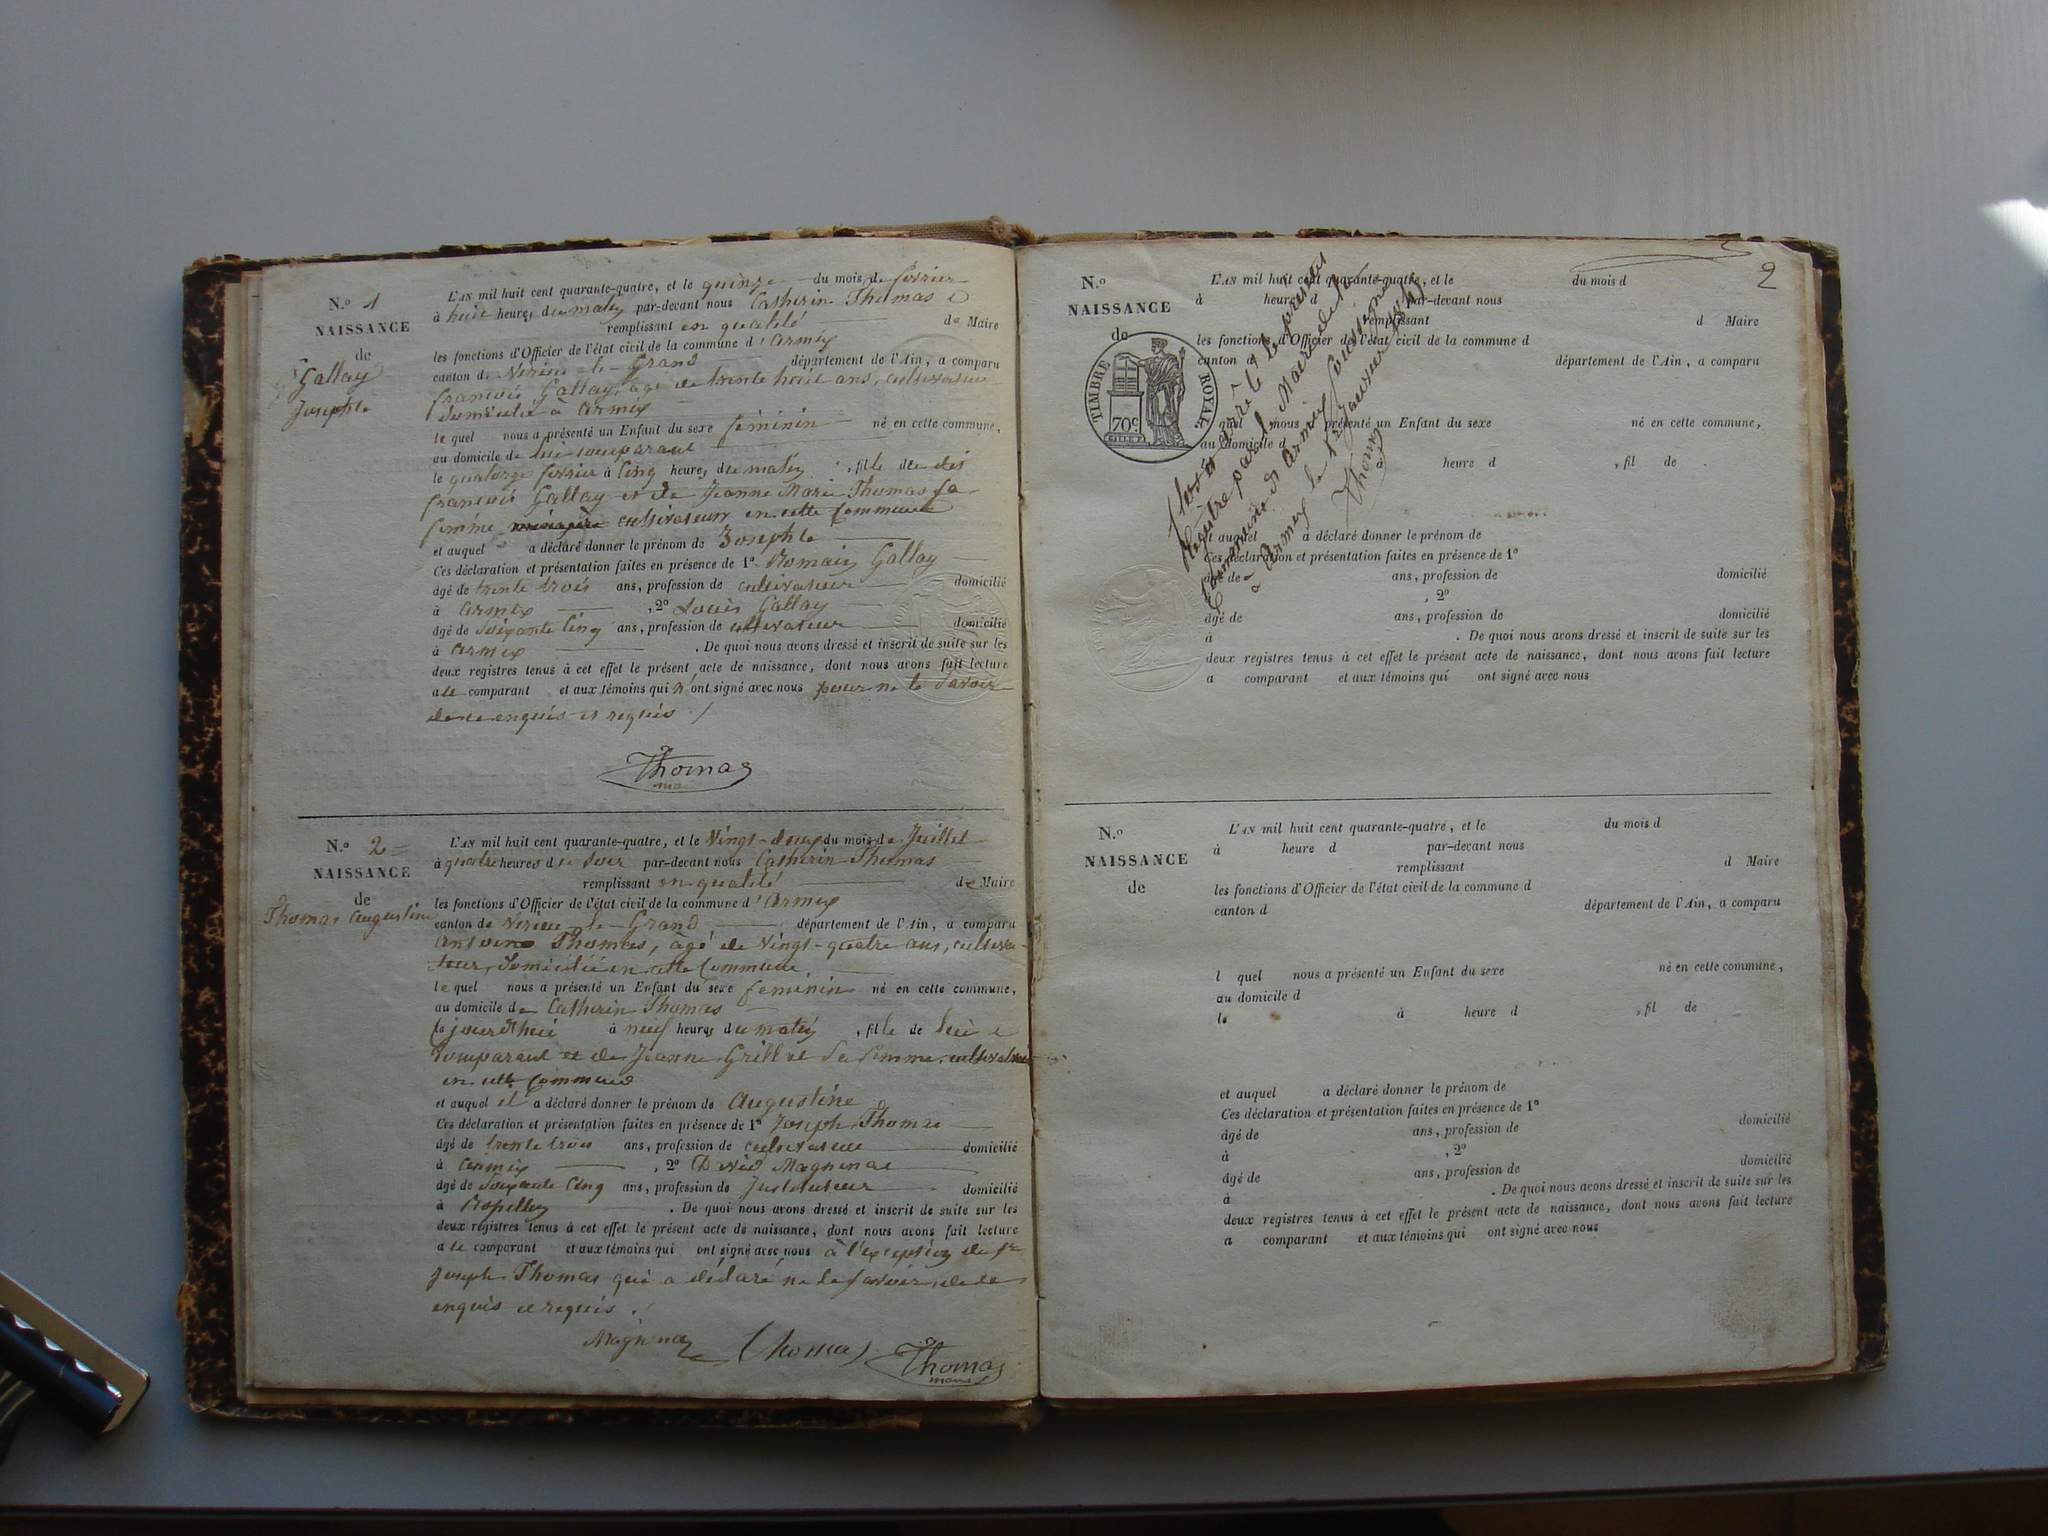 N.º 1
NAISSANCE
de
Gallay
Josephte
L'AN mil huit cent quarante-quatre, et le quinze du mois de fevrier
à huit heures du matin par-devant nous Catherin Thomas
remplissant en qualité de Maire
les fonctions d'Officier de l'état civil de la commune d'Armix
canton de Virieu-le-Grand département de l'Ain, a comparu
francois Gallay, âgé de trente huit ans, cultivateur
domicilié à Armix
le quel nous a présenté un Enfant du sexe féminin né en cette commune,
au domicile de lui comparant
le quatorze fevrier à Cinq heures du matin, fille de
francois Gallay et de Jeanne Marie Thomas sa
femme cultivateur en cette Commune
et auquel a déclaré donner le prénom de Josephte
Ces déclaration et présentation faites en présence de 1º Romain Gallay
âgé de trente trois ans, profession de cultivateur domicilié
à Armix, 2º Louis Gallay
âgé de Soixante Cinq ans, profession de cultivateur domicilié
à Armix. De quoi nous avons dressé et inscrit de suite sur les
deux registres tenus à cet effet le présent acte de naissance, dont nous avons fait lecture
a le comparant et aux témoins qui n'ont signé avec nous pour ne le Savoir
de ce enquis et requis ./
Thomas
maire
N.º 2
NAISSANCE
de
Thomas Augustine
L'AN mil huit cent quarante-quatre, et le Vingt-deux du mois de Juillet
à quatre heures du Soir par-devant nous Catherin Thomas
remplissant en qualité de Maire
les fonctions d'Officier de l'état civil de la commune d'Armix
canton de Virieu-le-Grand département de l'Ain, a comparu
Antoine Thomas, âgé de Vingt-quatre ans, cultiva-
teur, domicilié en cette Commune,
le quel nous a présenté un Enfant du sexe feminin né en cette commune,
au domicile de Catherin Thomas
le jourd'hui à neuf heures du matin, fille de lui
Comparant et de Jeanne Grillet Sa femme cultivateur
en cette Commune
et auquel il a déclaré donner le prénom de Augustine
Ces déclaration et présentation faites en présence de 1º Joseph Thomas
âgé de trente trois ans, profession de cultivateur domicilié
à Armix, 2º David Magninat
âgé de Soixante Cinq ans, profession de Instituteur domicilié
à Ropillon. De quoi nous avons dressé et inscrit de suite sur les
deux registres tenus à cet effet le présent acte de naissance, dont nous avons fait lecture
a le comparant et aux témoins qui ont signé avec nous à l'exception de
Joseph Thomas qui a déclaré ne le Savoir, de ce
enquis et requis ./
Magninat Thomas Thomas
maire
2
N.º
NAISSANCE
de
TIMBRE ROYAL
70c.
L'AN mil huit cent quarante-quatre, et le du mois d
à heure d par-devant nous
remplissant d Maire
les fonctions d'Officier de l'état civil de la commune d
canton d département de l'Ain, a comparu
l quel nous a présenté un Enfant du sexe né en cette commune,
au domicile d
à heure d , fil de
et auquel a déclaré donner le prénom de
Ces déclaration et présentation faites en présence de 1º
âgé de ans, profession de domicilié
, 2º
âgé de ans, profession de domicilié
à . De quoi nous avons dressé et inscrit de suite sur les
deux registres tenus à cet effet le présent acte de naissance, dont nous avons fait lecture
a comparant et aux témoins qui ont signé avec nous
Clos et arrêté le présent
Registre par le Maire de la
Commune d'Armix soussigné
à Armix le 1er Janvier
Thomas
N.º
NAISSANCE
de
L'AN mil huit cent quarante-quatre, et le du mois d
à heure d par-devant nous
remplissant d Maire
les fonctions d'Officier de l'état civil de la commune d
canton d département de l'Ain, a comparu
l quel nous a présenté un Enfant du sexe né en cette commune,
au domicile d
le à heure d , fil de
et auquel a déclaré donner le prénom de
Ces déclaration et présentation faites en présence de 1º
âgé de ans, profession de domicilié
à , 2º
âgé de ans, profession de domicilié
à . De quoi nous avons dressé et inscrit de suite sur les
deux registres tenus à cet effet le présent acte de naissance, dont nous avons fait lecture
a comparant et aux témoins qui ont signé avec nous